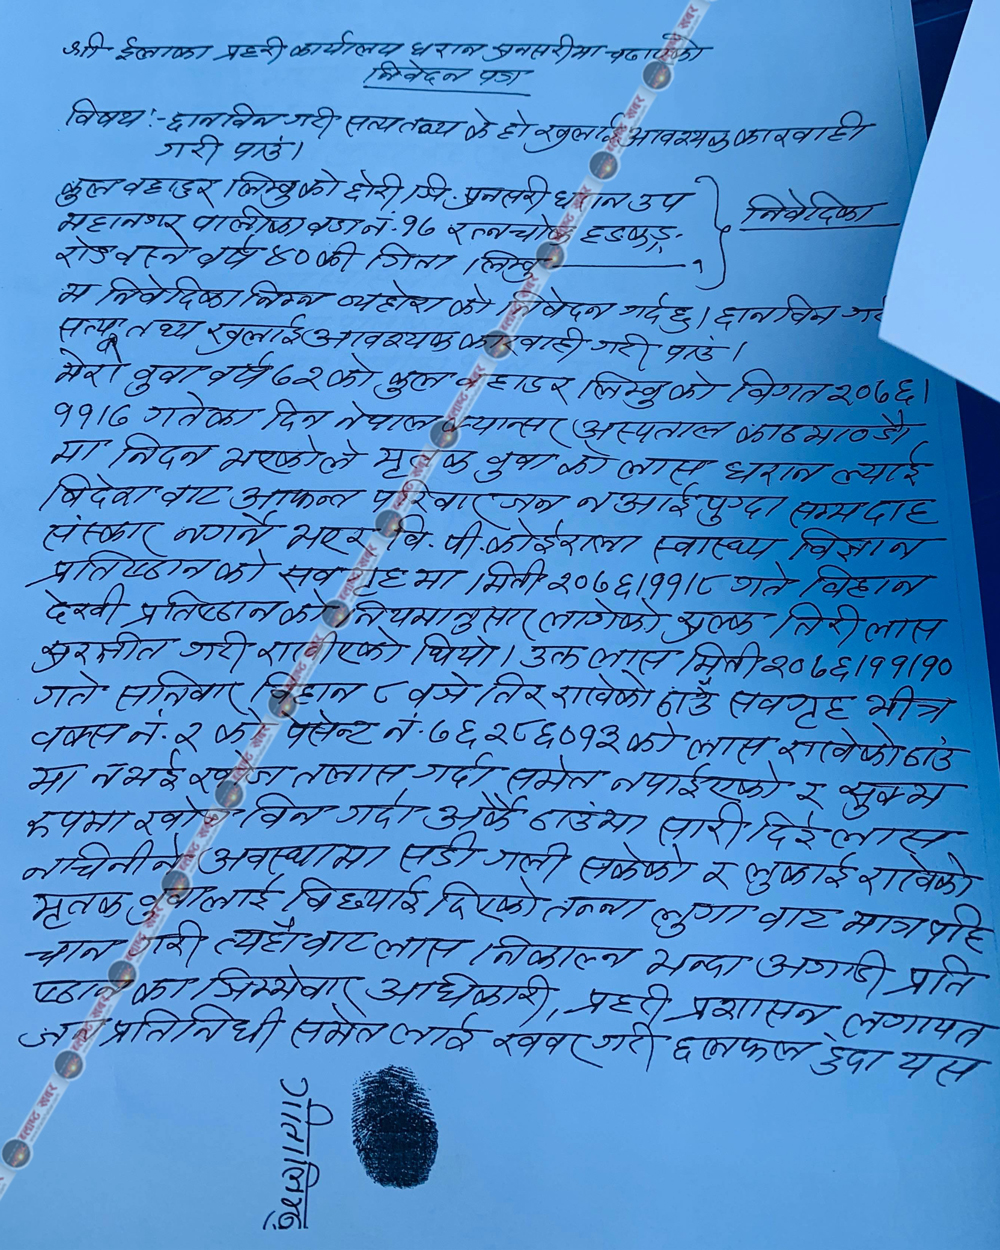 श्री ईलाका प्रहरी कार्यालय धरान सुनसरीमा चढाएको
निवेदन पत्र
विषय :- छानविन गरी सत्यतथ्य के हो खुलाई आवश्यक कारवाही
गरी पाउं।
कुल वहादुर लिम्बुको छोरी जि. सुनसरी धरान उप
महानगर पालीका वडा नं. १६ रत्नचोक हडकङ्ग
रोड वस्ने वर्ष ४० की गिता लिम्बु ——— १
निवेदिका
म निवेदिका निम्न व्यहोरा को निवेदन गर्दछु। छानविन
सत्य तथ्य खुलाई आवश्यक कारवाही गरी पाउं।
मेरो वुवा वर्ष ७२ को कुल वहादुर लिम्बुको विगत २०७६।
११।७ गतेका दिन नेपाल क्यान्सर अस्पताल काठमाण्डौ
मा निदन भएकोले मृतक वुवा को लास धरान ल्याई
विदेश वाट आफन्त परिवार जन न आईपुग्दा सम्म दाह
संस्कार नगर्ने भएर वि. पी. कोईराला स्वास्थ्य विज्ञान
प्रतिष्ठान को सव गृह मा मिती २०७६।११।८ गते विहान
देखी प्रतिष्ठान को नियमानुसार लागेको शुल्क तिरी लास
सुरक्षीत गरी राखीएको थियो। उक्त लास मिती २०७६।११।१०
गते सनिवार विहान ८ वजे तिर राखेको ठाउँ सवगृह भीत्र
वक्स नं. २ को पेसेन्ट नं. ७६२८६०१३ को लास राखेको ठाउं
मा नभई खोज तलास गर्दा समेत नपाईएको र सुक्ष्म
रुपमा खोज विन गर्दा अर्कै ठाउंमा सारी दिई लास
नचिनीने अवस्थामा सडी गली सकेको र लुकाई राखेको
मृतक वुवालाई विछ्याई दिएको तन्ना लुगा वाट मात्र पहि
चान गरी त्यहाँ वाट लास निकाल्न भन्दा अगाडी प्रति
ष्ठान का जिम्मेवार अधिकारी, प्रहरी प्रशासन लगायत
जन प्रतिनिधी समेत लाई खवर गरी छलफल हुंदा यस
गीता लिम्बु